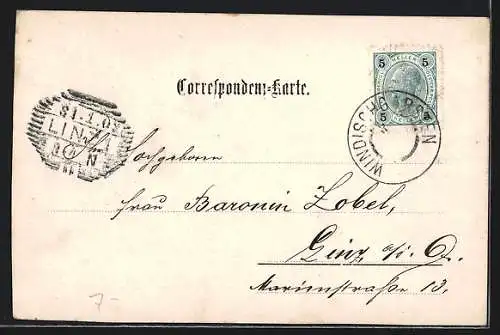 5 HELLER 5
Correspondenz-Karte.
5 5
WINDISCHGARSTEN
LINZ
Hochgeboren
Frau Baronin Zobel,
Linz a/d. D.
Marienstraße 13.
7-